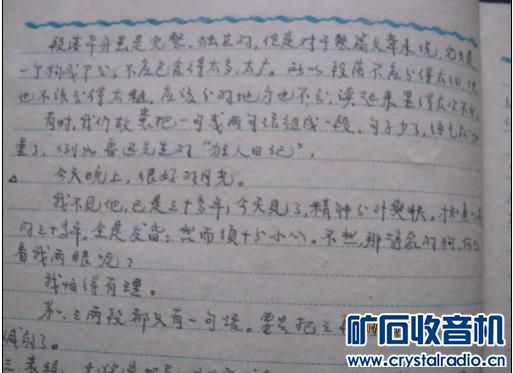 段落本身虽是完整、独立的，但是对于整篇文章来说，也只是
一个构成部分，不应包含得太多、太广。所以段落不应分得太细，
也不该分得太粗，应该分的地方也不分，读起来显得层次不
有时，我们故意把一句或两句话组成一段，句子少了，语气就加
重了，例如鲁迅先生的“狂人日记”，
今天晚上，很好的月光。
我不见他，已是三十多年；今天见了，精神分外爽快。才知道以前
的三十多年，全是发昏；然而须十分小心。不然，那赵家的狗，何以
看我两眼呢？
我怕得有理。
第一、三两段都只有一句话。要是把
得了。
三
矿石收音机
www.crystalradio.cn